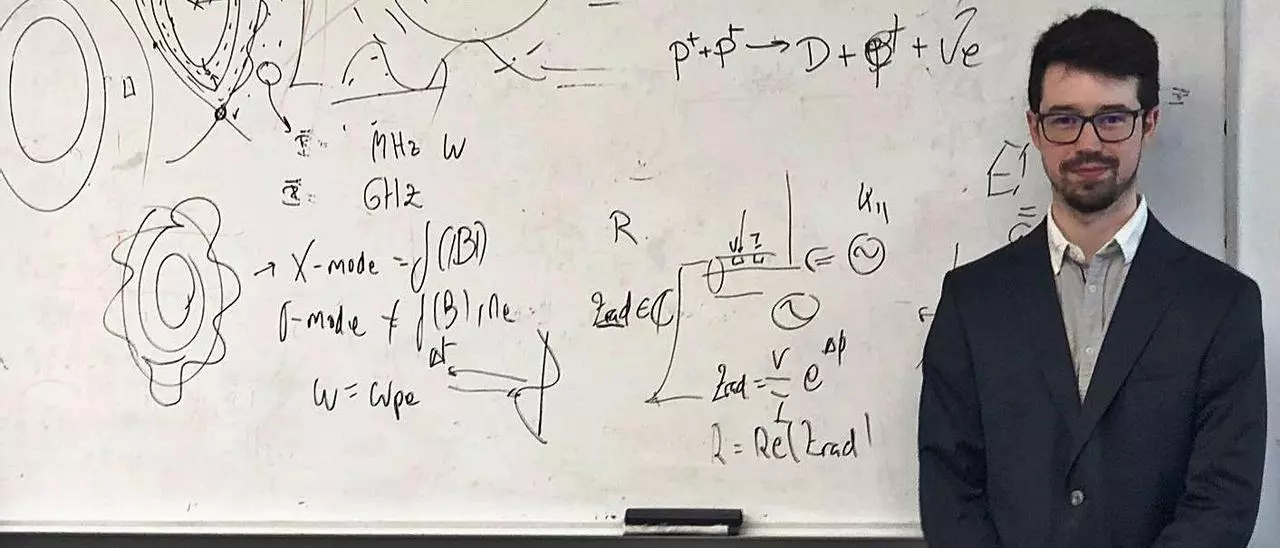 p⁺+p⁺→D+β⁺+νe
MHz W
GHz
→ X-mode = f(|B|)
O-mode ≠ f(B), ne
W = Wpe
Δt
R
K₁₁
Zrad ∈ ℂ
Zrad = V/I e^Δφ
R = Re(Zrad)